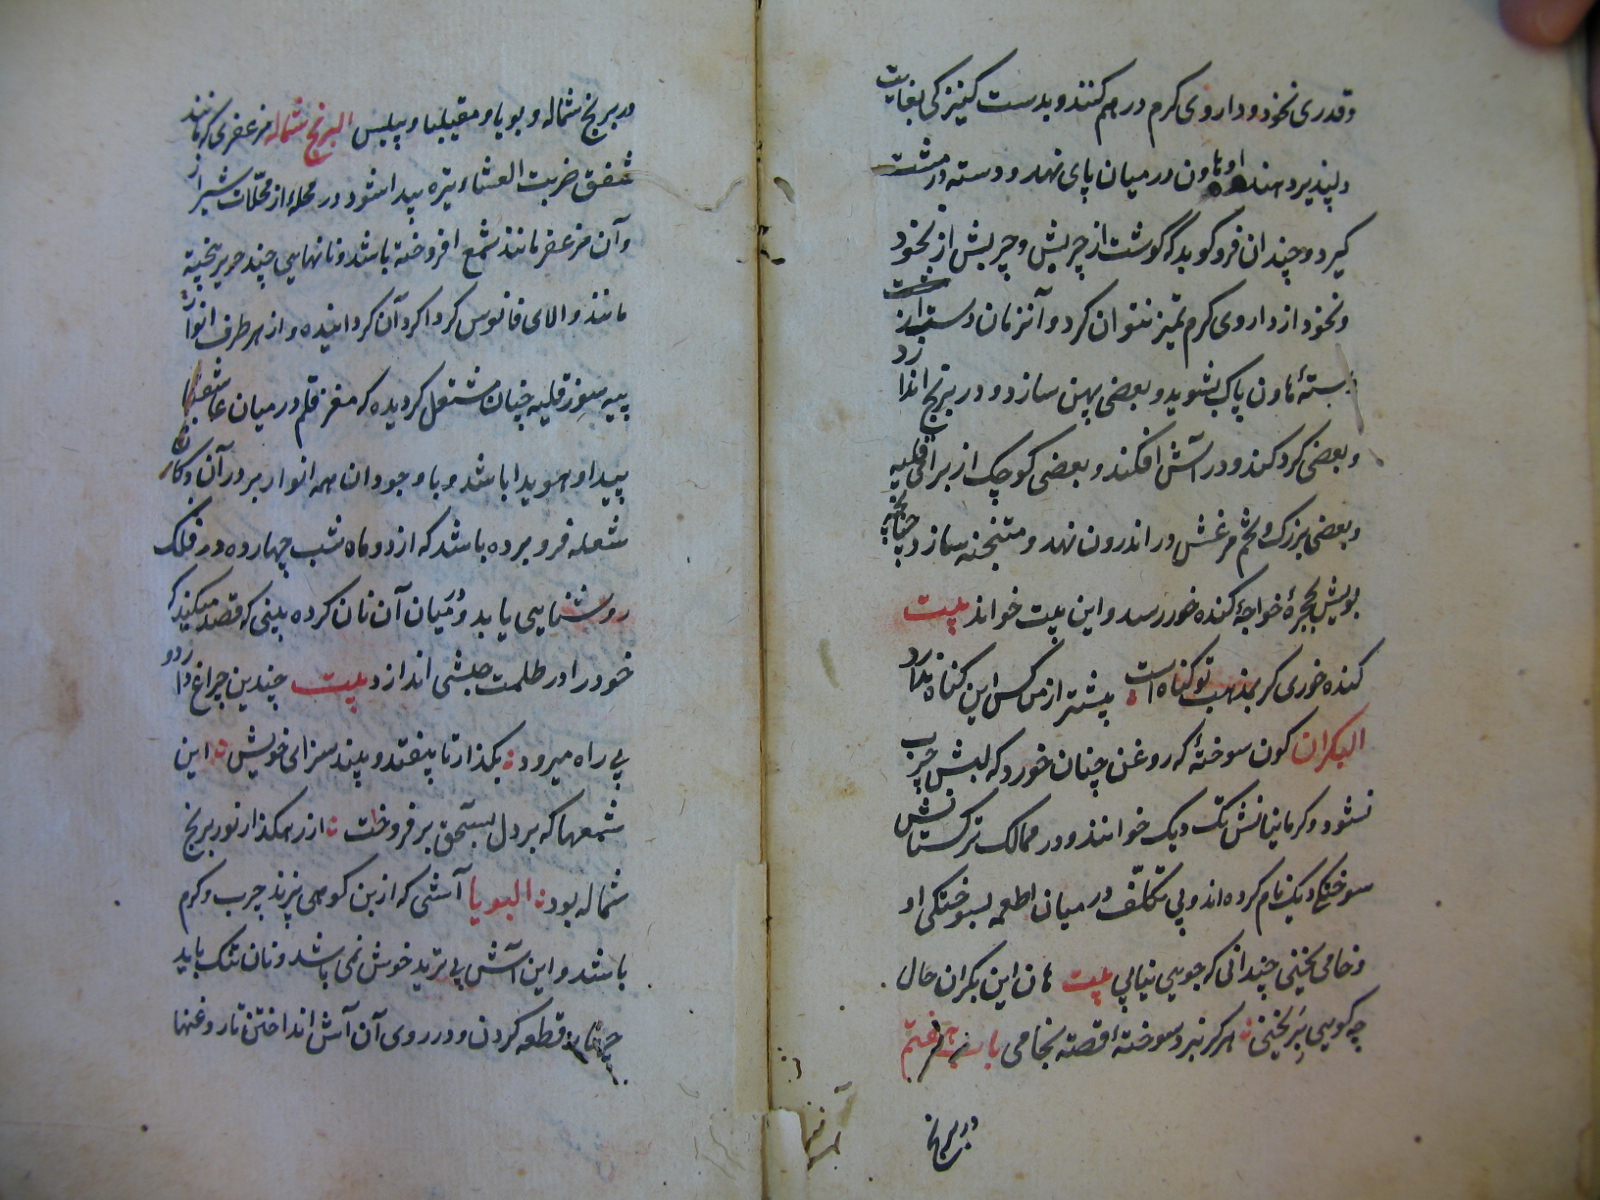 وقدری نخود و داروی گرم در هم کنند و بدست کنیزکی بغایت
دلپذیر دهند او هاون در میان پای نهد و دسته در مشت
گیرد و چندان فرو کوبد که گوشت از چربش و چربش از نخود
و نخود از داروی گرم تمیز نتوان کرد و آنزمان دست از
دستهٔ هاون پاک بشوید و بعضی پهن سازد و در برنج اندازد
و بعضی گرد کند و در آتش افکند و بعضی کوچک از برای قلیه
و بعضی بزرگ و تخم مرغش در اندرون نهد و متنجنه سازد چنانچه
بویش بحجرهٔ خواجهٔ کنده خور رسد و این بیت خواند بیت
کنده خوری گر بمذهب تو گناه است بیشتر از من کس این گناه ندارد
البکران کون سوختهٔ که روغن چنان خورد که لبش چرب
نشود و کرمانیانش تک دیک خوانند و در ممالک ترکستانش
سوختکی دیک نام کرده‌اند و بی تکلّف در میان اطعمه بسوختکی او
و خامی یخنی چندانی که جویی نیابی بیت هان این بکران حال
چه گویی بر یخنی هرگز نبرد سوختهٔ قصّه بخامی باب هفتم
در برنج
در برنج شماله و بویا و مقیلبا و پیلس البرنج شماله مزعفری که مانند
شفق ضربت العشاء تیره پیدا شود در محلهٔ از محلّات شیراز
و آن مزعفر مانند شمع افروخته باشد و نانهایی چند حریر بخیته
مانند والای فانوس گرداگرد آن گردانیده و از هر طرف انوار
پیه سوز قلیه چنان مشتعل گردیده که مغز قلم در میان عاشقیها
پیدا و هویدا باشد و با وجود آن همه انوار بر در آن دکان
شعله فرو برده باشد که از دو ماه شب چهارده در فلک
روشنایی یابد و میان آن نان گرده بینی که قصد میکند که
خود را در ظلمت حبشی اندازد بیت چندین چراغ دارد و
بی راه میرود بگذار تا بیفتد و بیند سزای خویش این
شمعها که بر دل بسحق برفروخت از رهگذار نور برنج
شماله بود البویا آشی که از بن کوهی پزند چرب و گرم
باشد و این آش بی ترید خوش نمی باشد و نان تنک باید
قطعه کردن و در روی آن آش انداختن تا روغنها